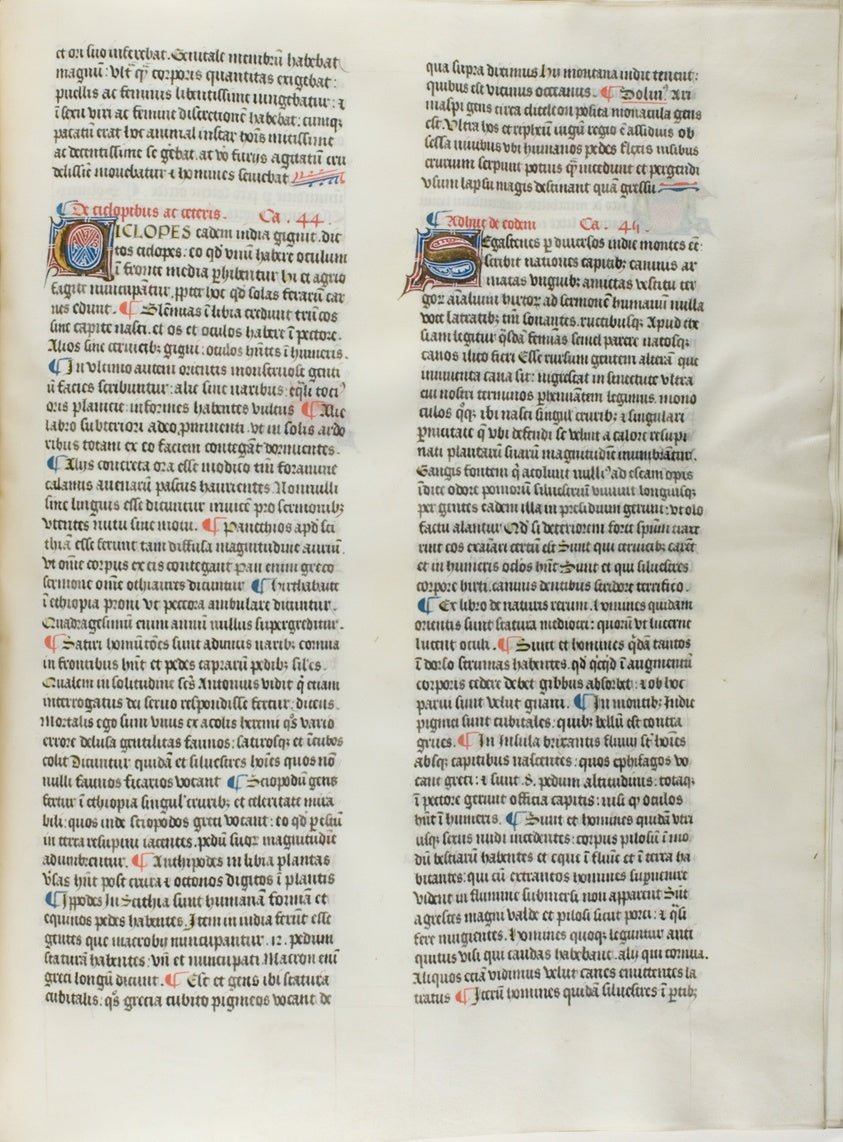 et ori suo inferebat. Genitale membrū habebat
magnū: vlt̄ q̄ȝ corporis quantitas exigebat:
puellis ac feminis libentissime iungebatur: ⁊
ī sexu viri ac femine discretionē habebat: cumqȝ
pacatū erat hoc animal instar hoīs mitissime
ac decentissime se gēbat. at vō furijs agitatū cru
delissīē mouebatur ⁊ homines seuiebat
¶ De ciclopibus ac ceteris. Ca. 44.
CICLOPES eadem india gignit. dic̄
tos ciclopes. eo qd̓ vnū habere oculum
ī fronte media ꝑhibentur hi et agrio
fagite nūcupātur, ꝓpter hoc qd̓ solas feraꝝ car
nes edunt. ¶ Blēmias ī libia credunt trūcos
sine capite nasci. et os et oculos habere ī pectore.
Alios sine ceruicibȝ gigni: oculos hn̄tes ī humeris.
¶ In vltimo autem orientis monstruose genti
ū facies scribuntur: alie sine naribus: eq̄li toci⁹
oris planicie: informes habentes vultus ¶ Alie
labro subteriori adeo ꝓminenti. vt in solis ardo
ribus totam ex eo faciem contegāt dormientes.
¶ Alijs concreta ora esse modico tm̄ foramine
calamis auenarū pastus haurientes Nonnulli
sine linguis esse dicuntur inuicē pro sermonibȝ
vtentes nutu siue motu. ¶ Panethios apd̓ sci
thiā esse ferunt tam diffusa magnitudine auriū.
vt om̄e corpus ex eis contegant Pan enim greco
sermone om̄e othi aures dicuntur ¶ Hirthabatit
ī ethiopia proni vt peccora ambulare dicuntur.
Quadragesimū enim annū nullus supergreditur.
¶ Satiri homūcōes sunt aduncis naribȝ cornua
in frontibus hn̄t et pedes capraꝝ pedibȝ siles.
Qualem in solitudine scs̄ Antonius vidit q̄ etiam
interrogatus dei seruo respondisse fertur: dicens.
Mortalis ego sum vnus ex acolis heremi qͦs vario
errore delusa gentilitas faunos: satirosqȝ et īcubos
colit Dicuntur quidā et siluestres hoīes quos nō
nulli faunos ficarios vocant ¶ Sciopodū gens
fertur ī ethiopia singul̓ cruribȝ et celeritate mira
bili: quos inde sciopodos greci vocant: eo qd̓ ꝑ estū
in terra resupini iacentes. pedū suoꝝ magnitudīe
adumbrentur. ¶ Anthipodes in libia plantas
v̓sas hn̄t post crura ⁊ octonos digitos ī plantis
¶ Ippodes In Scithia sunt humanā formā et
equinos pedes habentes. Item in india ferūt esse
gentes que macrobij nuncupantur. 12. pedum
staturā habentes: vn̄ et nuncupati. Macron enī
greci longū dicunt. ¶ Est et gens ibi statura
cubitalis. qͦs grecia cubito pigmeos vocant de
qua supra diximus hij montana indie tenent:
quibus est vicinus occeanus. ¶ Solin⁹. Ari
maspi gens circa cliteleon posita monacula gens
est. Vltra hos et ripheū iugū regio ē assiduis ob
sessa niuibus vbi humanos pedes flexis nisibus
crurum serpunt potius q̄ȝ incedunt et pergendi
vsum lapsu magis destinant quā gressu
¶ Adhuc de eodem Ca. 45.
Segastenes ꝑ diuersos indie montes eē
scribit nationes capitibȝ caninis ar
matas vnguibȝ amictas vestitu ter
goꝝ aīalium hirtoꝝ ad sermonē humanū nulla
voce latratibȝ tm̄ sonantes. rictibusqȝ Apud cte
siam legitur qͣsdā feminas semel parere natosqȝ
canos ilico fieri Esse rursum gentem alterā que
iuuenta cana sit: nigrescat in senectute vltra
eui nostri terminos ꝑhēnātem legimus. mono
culos qͦqȝ ibi nasci singul̓ cruribȝ ⁊ singulari
ꝑnicitate q̄ vbi defendi se velint a calore resupi
nati plantarū suarū magnitudīe inumbrātur.
Gangis fontem q̄ acolunt nulli⁹ ad escam opis
īdigē odore pomorū siluestriū viuunt longiusqȝ
pergentes eadem illa in presidium gerunt: vt olo
factu alantur Qd̓ si deteriorem forte spm̄ traxe
rint eos exaīari certū est Sunt qui ceruicibȝ carēt
et in humeris oclos hn̄t Sunt et qui siluestres
corpore hirti. caninis dentibus stridore terrifico.
¶ Ex libro de naturis rerum. homines quidam
orientis sunt statura mediocri: quoꝝ vt lucerne
lucent oculi. ¶ Sunt et homines q̄dā tantos
ī dorso strumas habentes. qd̓ qͥcqͥd ī augmentū
corporis cedere debet gibbus absorbet: ⁊ ob hoc
parui sunt velut gnani. ¶ In montibȝ Indie
pigmei sunt cubitales: quibȝ bellū est contra
grues. ¶ In Insula brixantis fluuij st̄ hoīes
absqȝ capitibus nascentes: quos ephifagos vo
cant greci: ⁊ sunt .8. pedum altitudinis: totaqȝ
ī pectore gerunt officia capitis: nisi q̄ oculos
hn̄t ī humeris. ¶ Sunt et homines quidā vtri
usqȝ sexus nudi incedentes: corpus pilosū ī mo
dū bestiarū habentes et eque ī fluīe et ī terra ha
bitantes: qui cū extraneos homines supuenire
vident in flumine submersi non apparent Sūt
agrestes magni valde et pilosi sicut porci: ⁊ qͣsi
fere mugientes. Homines quoqȝ leguntur anti
quitus visi qui caudas habebant. alij qui cornua.
Aliquos eciā vidimus velut canes emittentes la
tratus ¶ Iterū homines quidā siluestres ī ꝑtibȝ